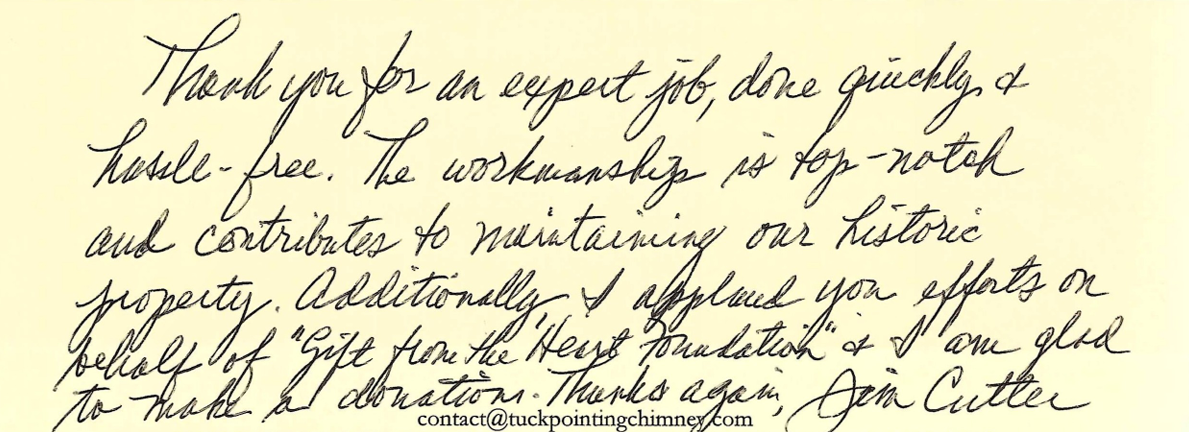 Thank you for an expert job, done quickly &
hassle-free. The workmanship is top-notch
and contributes to maintaining our historic
property. Additionally, I applaud you efforts on
behalf of "Gift from the Heart Foundation" & I am glad
to make a donation. Thanks again, Jim Cutter
contact@tuckpointingchimney.com